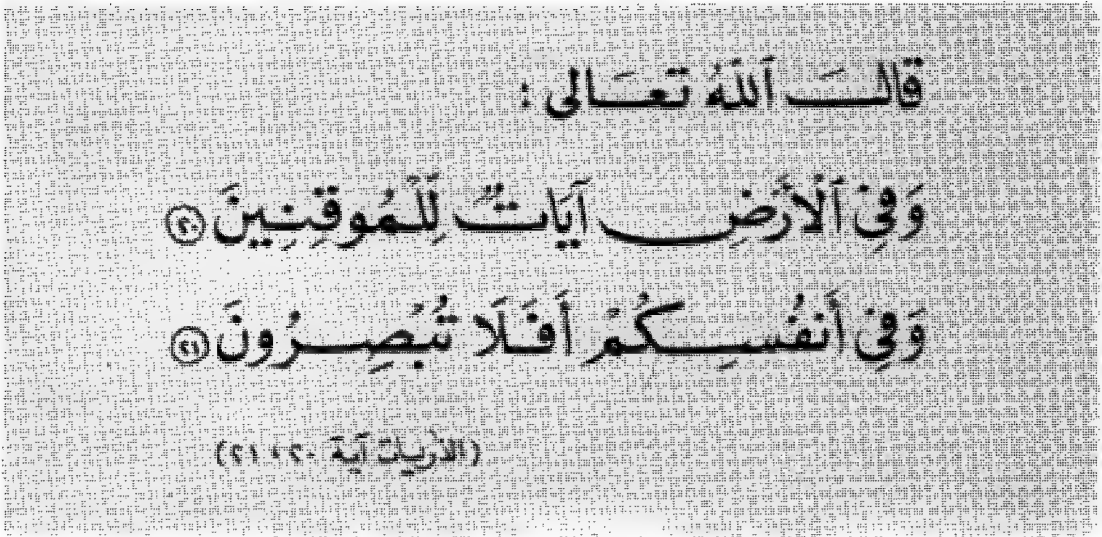 قَالَ ٱللَّهُ تَعَالَى :
وَفِي ٱلْأَرْضِ آيَاتٌ لِّلْمُوقِنِينَ ٢٠
وَفِي أَنفُسِكُمْ أَفَلَا تُبْصِرُونَ ٢١
(الذريات آية ٢٠، ٢١)